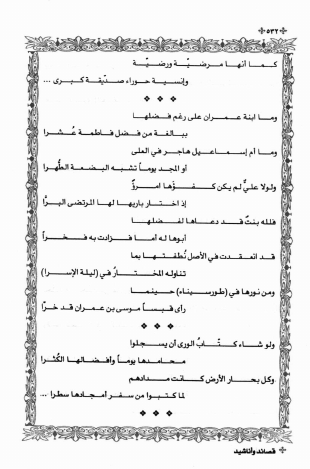 ٥٣٢
كما أنها مرضيّة ورضيّة
وإنسية حوراء صدّيقة كبرى ...
وما ابنة عمران على رغم فضلها
ببالغة من فضل فاطمة عُشرا
وما أم إسماعيل هاجر في العلى
أو المجد يوماً تشبه البضعة الطُّهرا
ولولا عليٌّ لم يكن كفؤَها امرؤٌ
إذ اختار باريها لها المرتضى البرّا
فلله بنتٌ قد دعاها لفضلها
أبوها له أما فزادت به فخراً
قد انعقدت في الأصل نُطفتها بما
تناوله المختار في (ليلة الإسرا)
ومن نورها في (طور سيناء) حينما
رأى قبساً موسى بن عمران قد خرّا
ولو شاء كتّابُ الورى أن يسجلوا
محامدها يوماً وأفضالها الكُثرا
وكل بحار الأرض كانت مدادهم
لما كتبوا من سفر أمجادها سطرا ...
قصائد وأناشيد